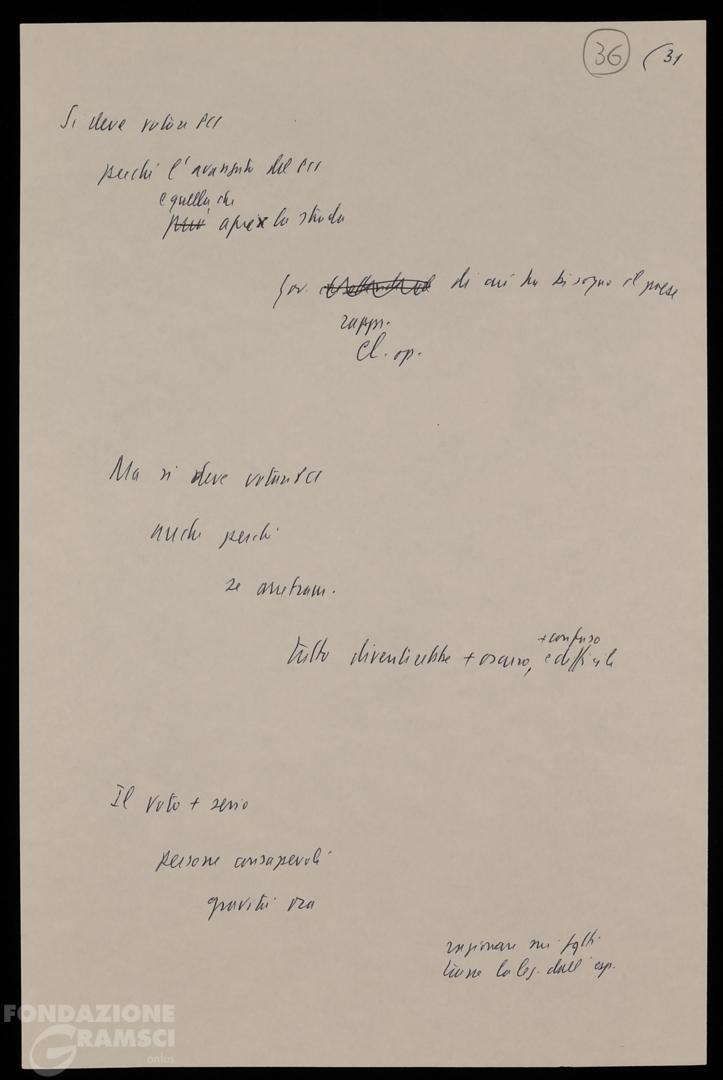 36 (31
Si deve votare PCI
perché l'avanzata del PCI
è quella che
può apre la strada
Gov. di cui ha bisogno il paese
rappr.
cl. op.
Ma si deve votare PCI
anche perché
se arretram.
tutto diventerebbe + oscuro, + confuso
e difficile
Il voto + serio
persone consapevoli
gravità ora
ragionare sui fatti
trarre la lez. dall'esp.
FONDAZIONE
GRAMSCI
onlus